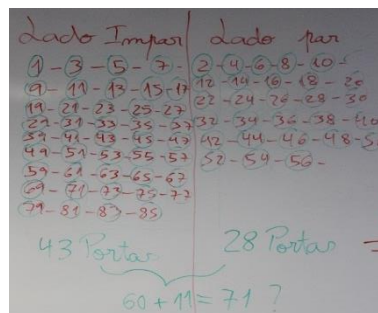 Lado Impar
1-3-5-7-
9-11-13-15-17
19-21-23-25-27
29-31-33-35-37
39-41-43-45-47
49-51-53-55-57
59-61-63-65-67
69-71-73-75-77
79-81-83-85
43 Portas
Lado par
2-4-6-8-10-
12-14-16-18-20
22-24-26-28-30
32-34-36-38-40
42-44-46-48-5
52-54-56-
28 Portas =
60+11=71?